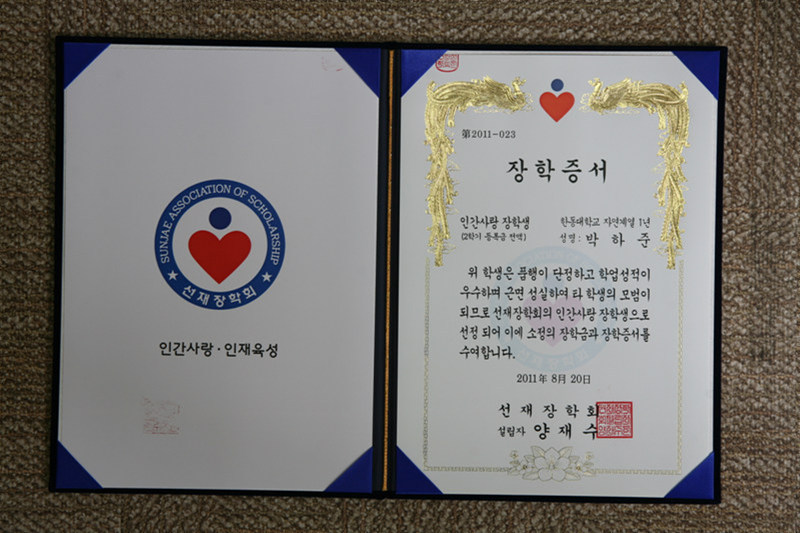 SUNJAE ASSOCIATION OF SCHOLARSHIP
선재장학회
인간사랑·인재육성
第2011-023
장학증서
인간사랑 장학생
(2학기 등록금 전액)
한동대학교 자연계열 1년
성명 : 박하준
위 학생은 품행이 단정하고 학업성적이
우수하며 근면 성실하여 타 학생의 모범이
되므로 선재장학회의 인간사랑 장학생으로
선정 되어 이에 소정의 장학금과 장학증서를
수여합니다.
2011年 8月 20日
선재장학회
설립자 양재수